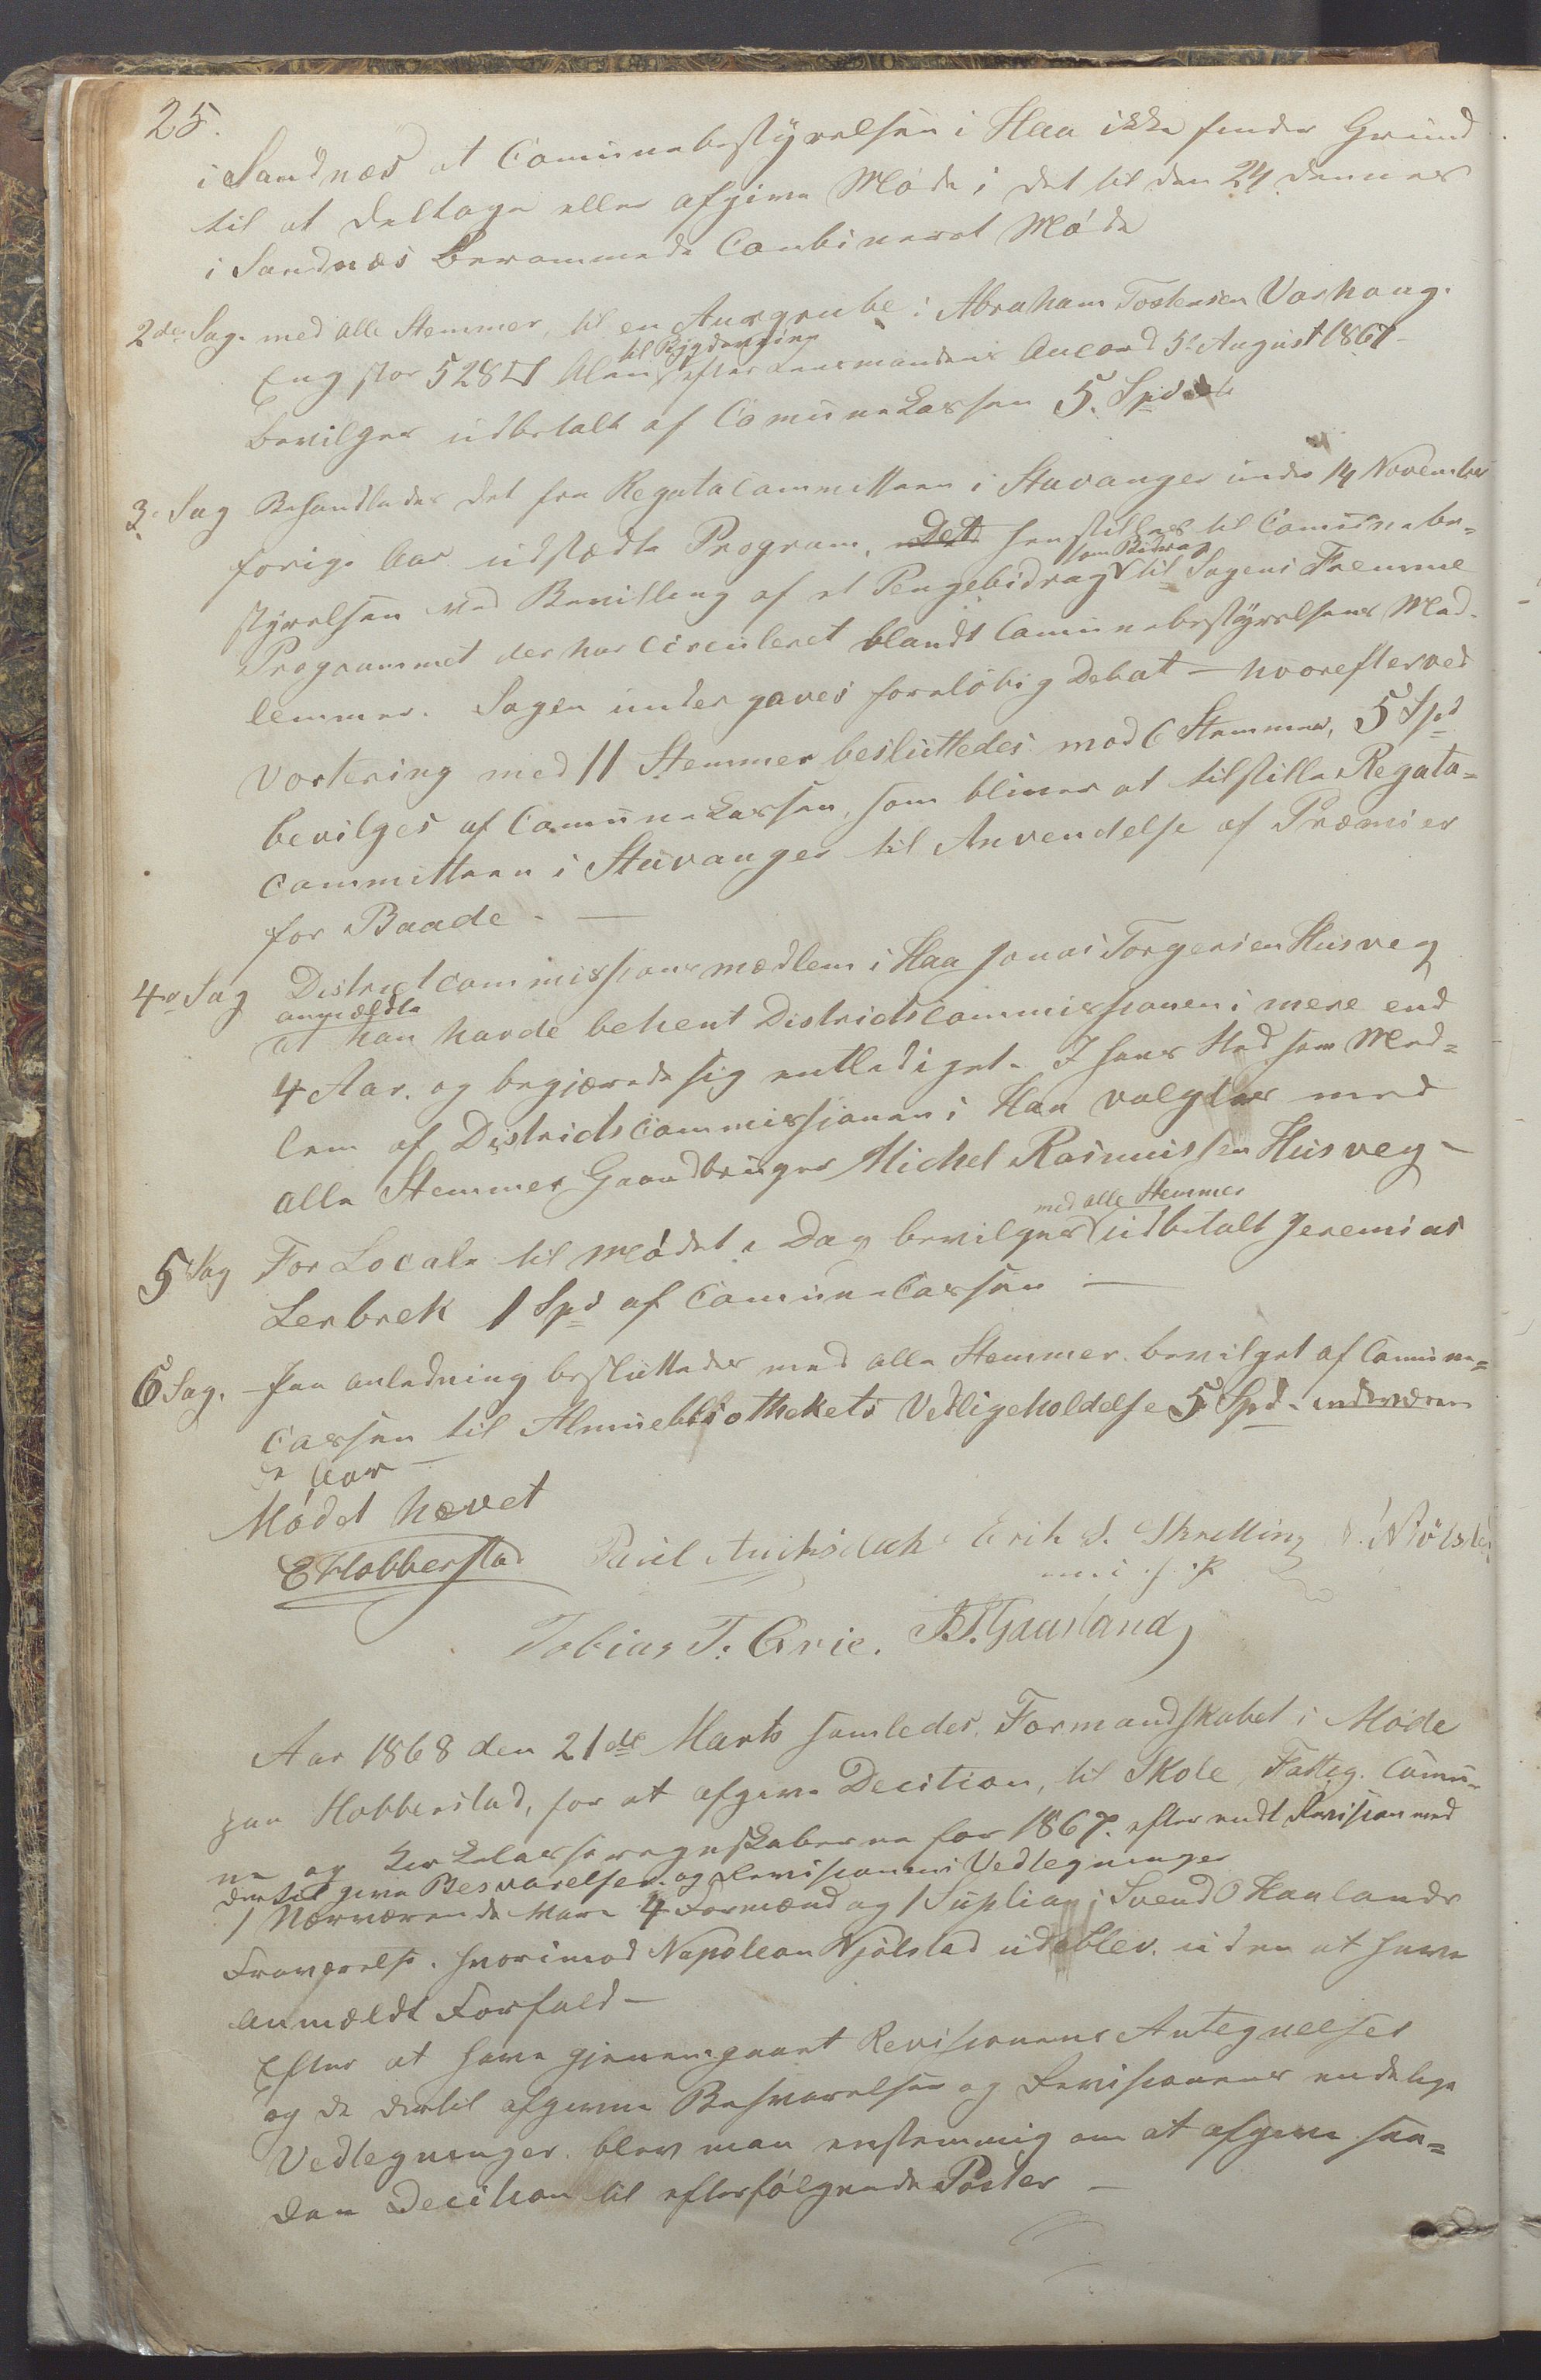 25.
i Sandnæs at Comunebestyrelsen i Haa ikke finder Grund
til at deltage eller afgive Møde i det til den 24 dennes
i Sandnæs berammede Combineret Møde
2de Sag. med alle Stemmer, til en Aurgrube i Abraham Tostensen Varhaug.
til Bygdeveiene
Eng stor 528 □ Alen efter Lensmandens Aucord 5te August 1867
bevilges udbetalt af Comunekassen 5. Spd
3. Sag Behandledes det fra Regatacommitteen i Stavanger under 14 November
forige Aar udstædte Program, Det henstilles til Comunebe-
som Bidrag
styrelsen ved Bevilling af et Pengebidrag til Sagens Fremme
Programmet der har circuleret blandt Comunebestyrelsens Med-
lemmer. Sagen undergaves foreløbig Debat – hvorefter ved
Vortering med 11 Stemmer besluttedes mod 6 Stemmer, 5 Spd
bevilges af Comunekassen, som bliver at tilstille Regata-
Committeen i Stavanger til Anvendelse af Præmier
for Baade –
4de Sag Districtcommissions medlem i Haa Jonas Torgersen Husveg
anmældte
at han havde behent Districtscommissionen i mere end
4 Aar. og begjærede sig entlediget. I hans Sted som Med-
lem af Districtscommissionen i Haa valgtes med
alle Stemmer Gaardbruger Michel Rasmussen Husveg –
med alle Stemmer
5 Sag For Locale til Mødet i Dag bevilges udbetalt Jeremias
Lerbrek 1 Spd af Comunecassen –
6 Sag. – Paa anledning besluttedes med alle Stemmer bevilget af Comune-
cassen til Almuebibliothekets Vedligeholdelse 5 Spd. indeværen
de Aar –
Mødet hævet
E Hobberstad Paul Aniksdahl Erik S. Skretting N. Njølstad
m. i. f. P.
Tobias T. Grie. B. T. Gausland
Aar 1868 den 21de Marts samledes Formandskabet i Møde
paa Hobberstad, for at afgive Decition, til Skole, Fattig. Comu-
ne og Kirkekasseregnskaberne for 1867. efter endt Revision med
dertil givne Besvarelser. og Revisionens Vedtegninger
/ Nærværende Vare 4 Formænd og 1 Supliant i Svend O Haalands
Fraværelse. hvorimod Napoleon Njølstad udeblev. uden at have
anmældt Forfald –
Efter at have gjennemgaaet Revisionens Antegnelser
og de dertil afgivne Besvarelser og Revisionens endelige
Vedtegninger. blev man enstemmig om at afgive saa-
dan Decition til efterfølgende Poster –